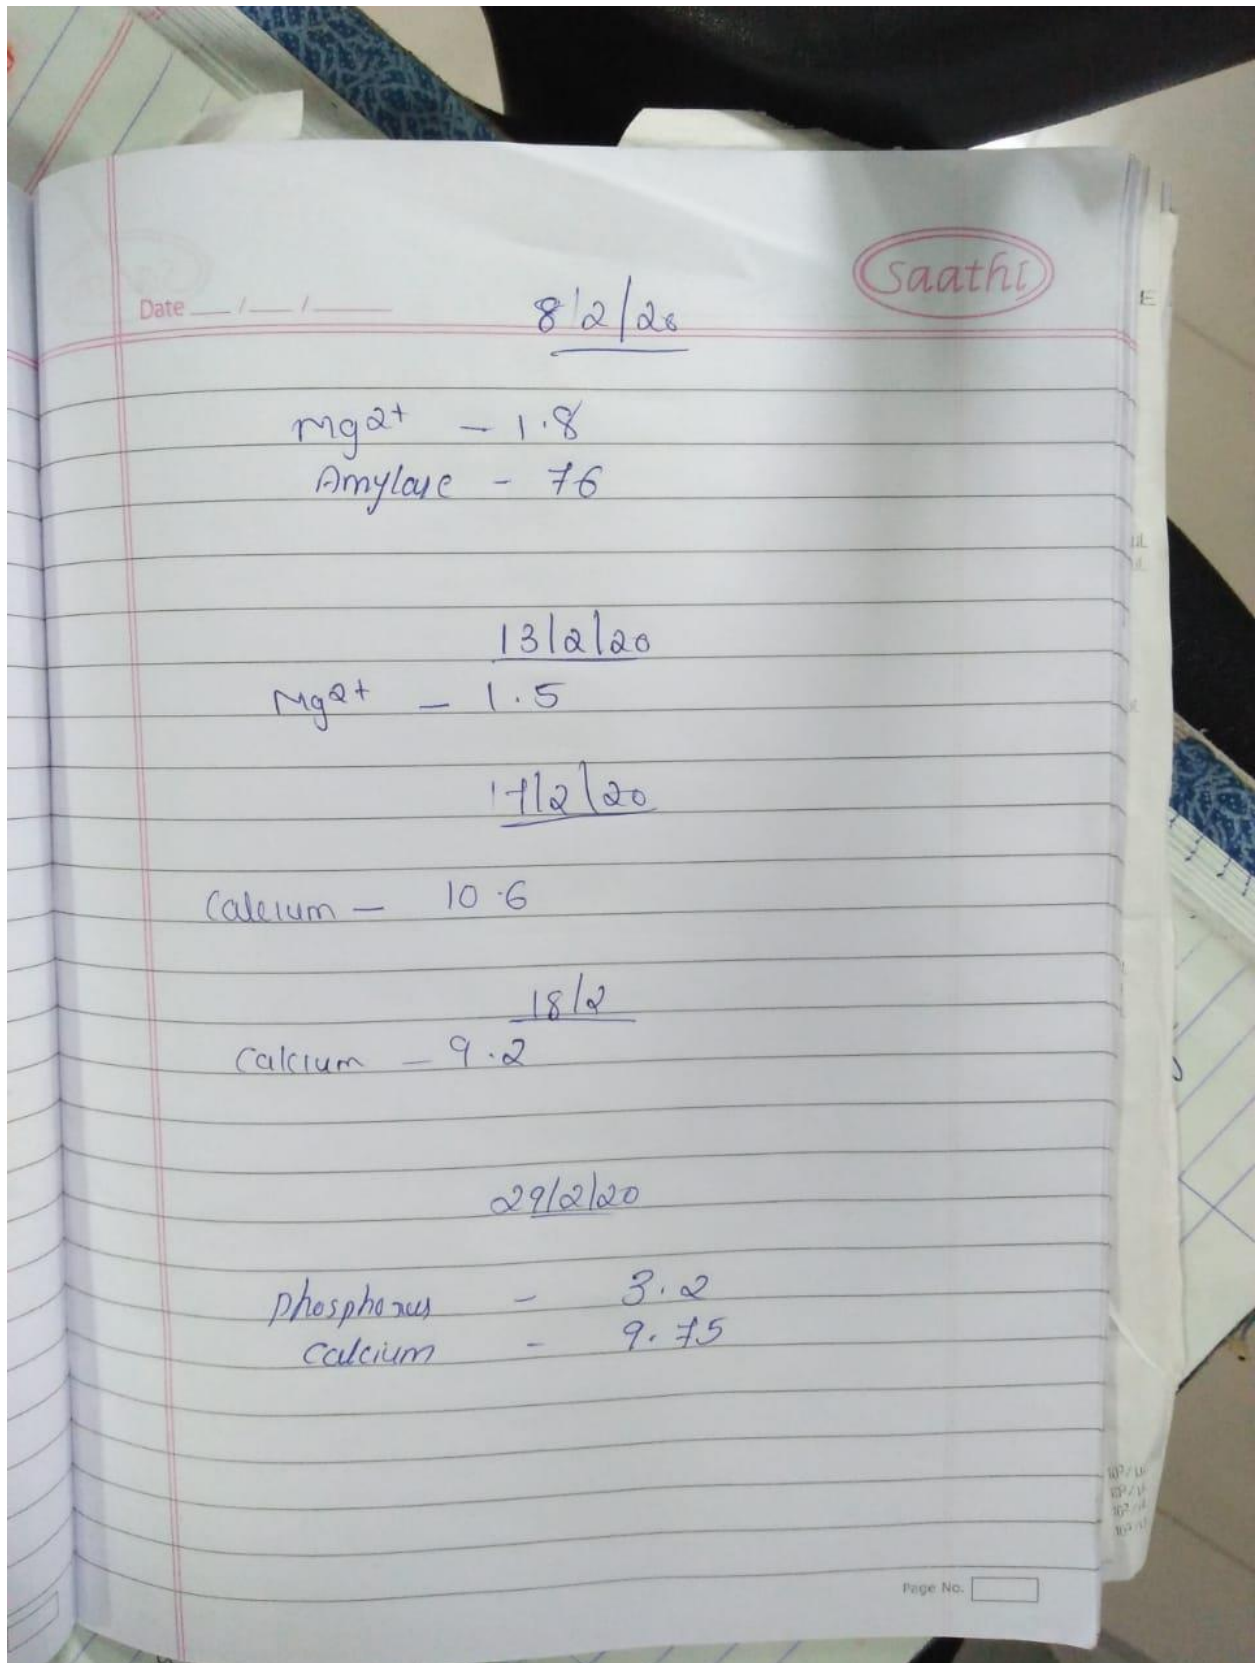 saathi
Date __/__/____
8/2/20
Mg2+ - 1.8
Amylase - 76
13/2/20
Mg2+ - 1.5
17/2/20
Calcium - 10.6
18/2
Calcium - 9.2
29/2/20
phosphorus - 3.2
calcium - 9.75
Page No.